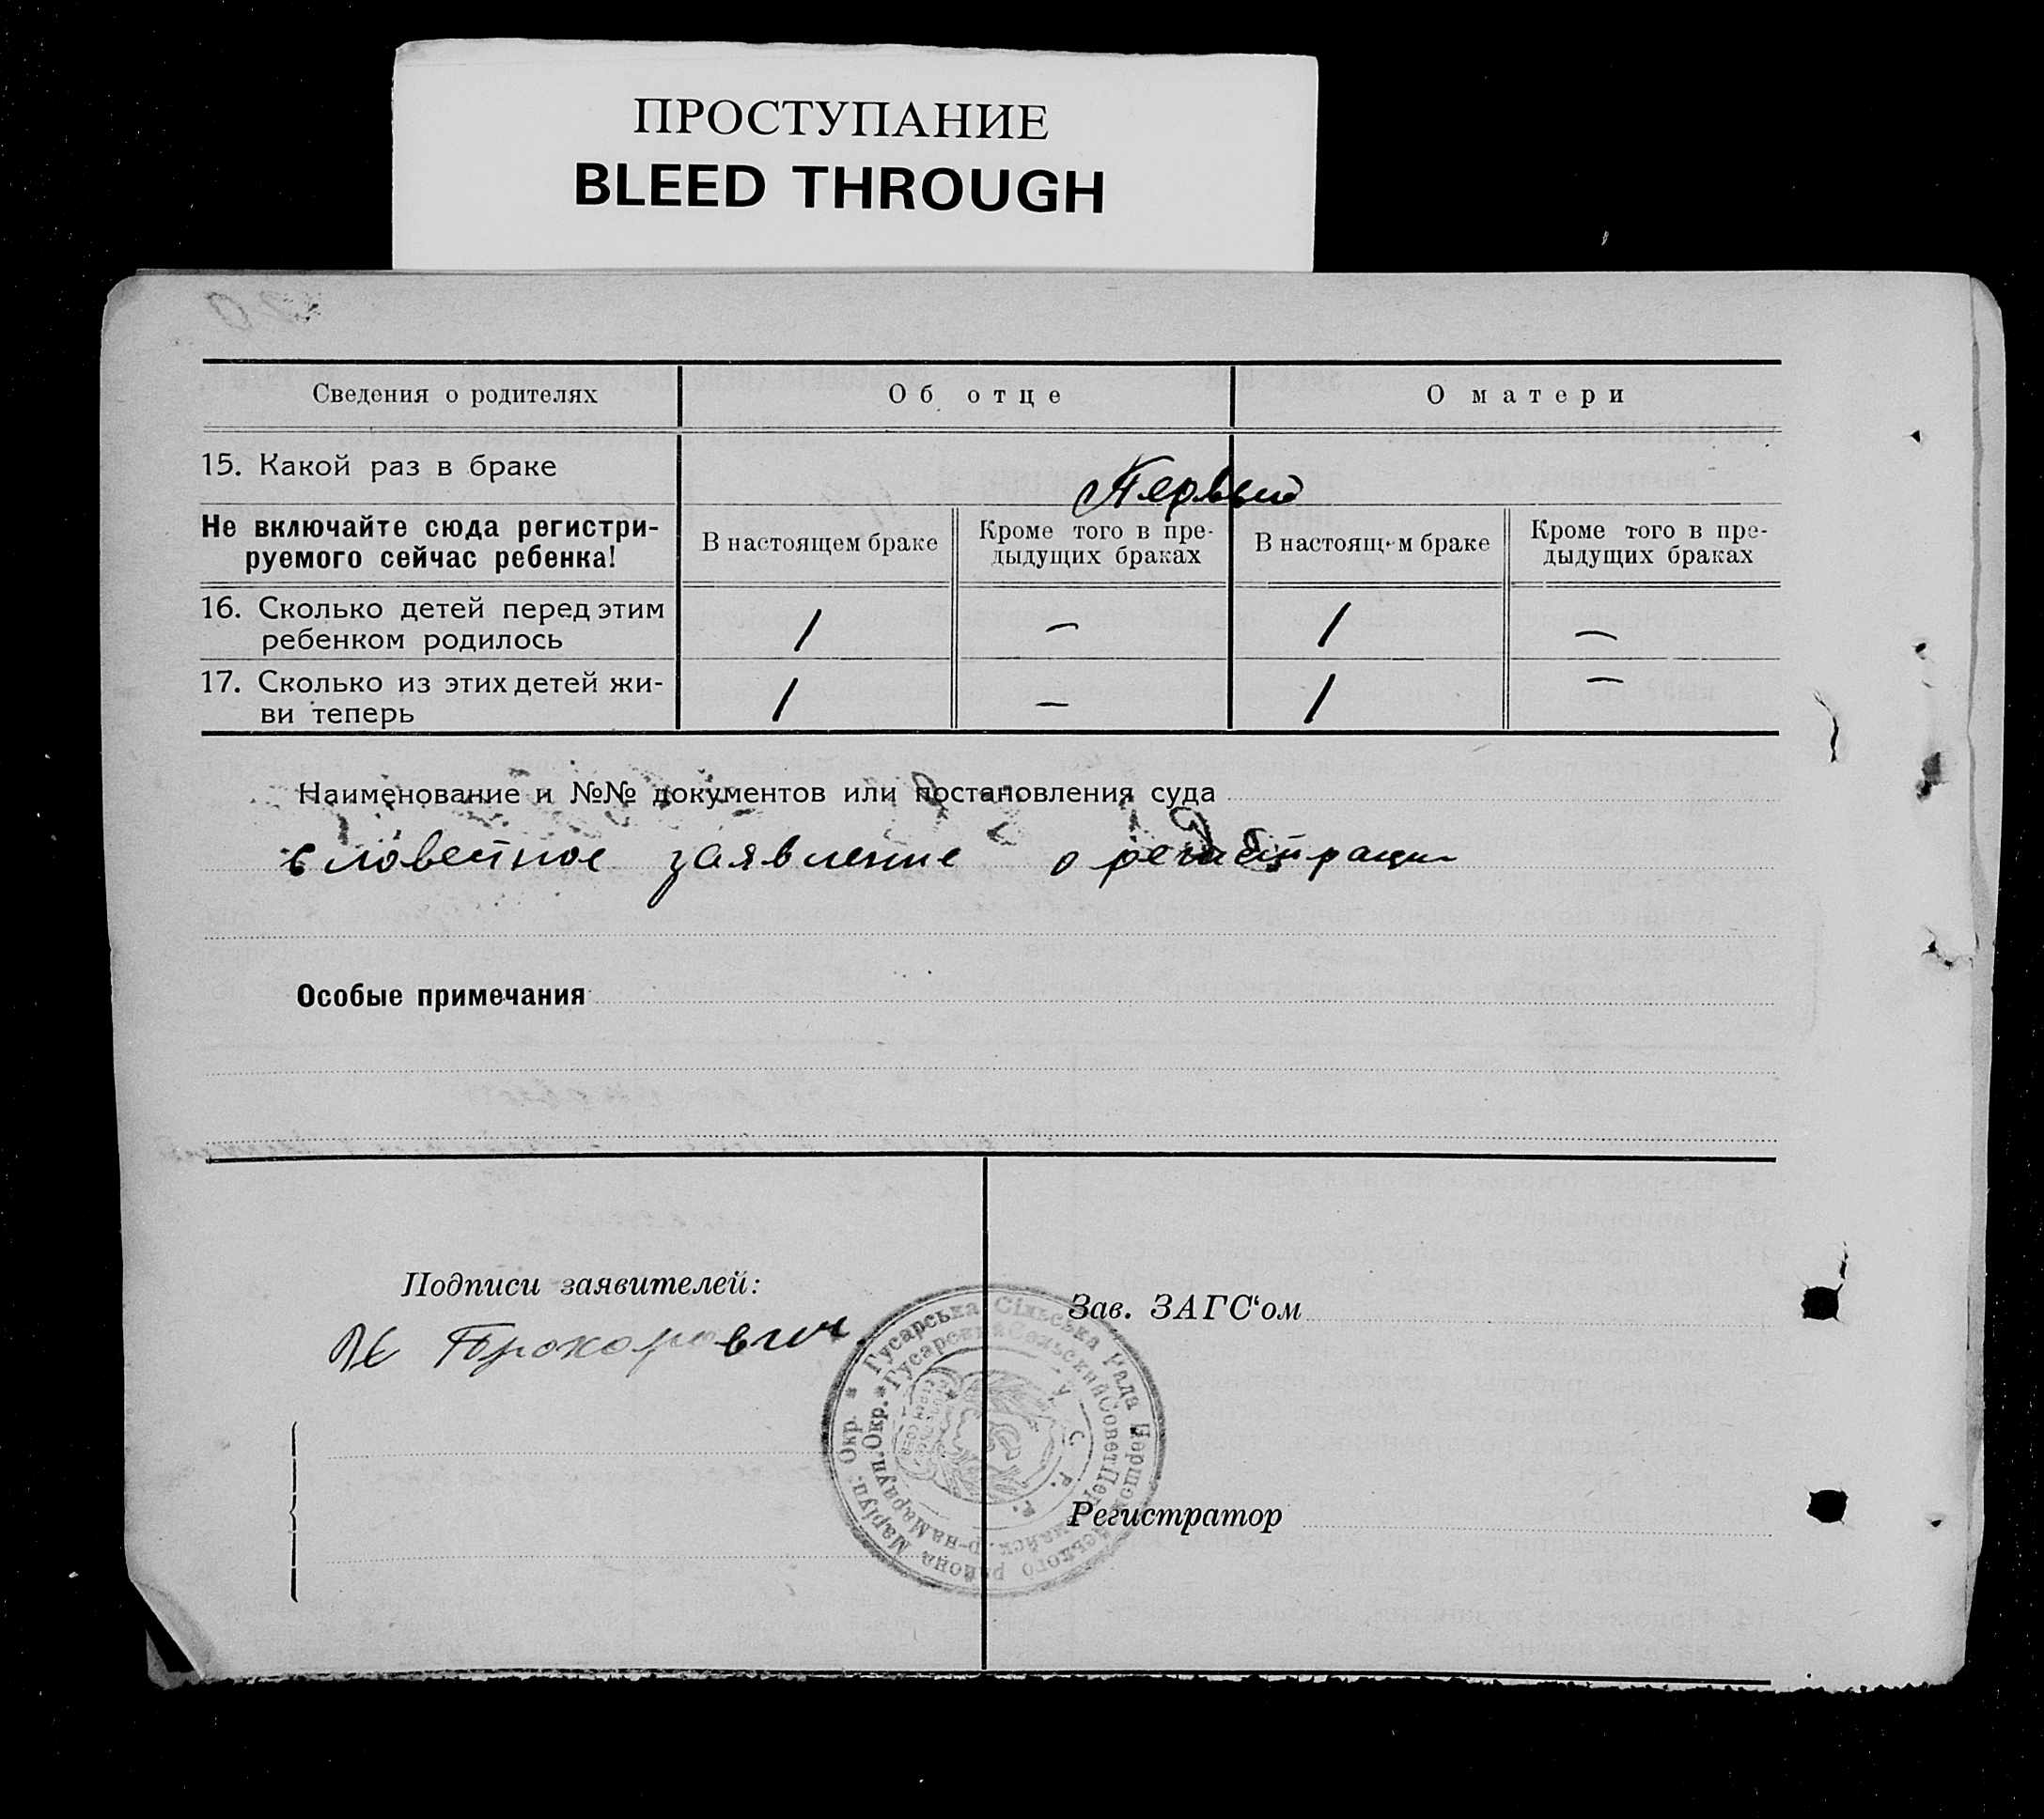 ПРОСТУПАНИЕ
BLEED THROUGH
Сведения о родителях Об отце О матери
15. Какой раз в браке Первый
Не включайте сюда регистри-
руемого сейчас ребенка!
В настоящем браке
Кроме того в пре-
дыдущих браках
В настоящем браке
Кроме того в пре-
дыдущих браках
16. Сколько детей перед этим
ребенком родилось 1 — 1 —
17. Сколько из этих детей жи-
ви теперь 1 — 1 —
Наименование и №№ документов или постановления суда
словестное заявление о регистрации
Особые примечания
Подписи заявителей:
Прохорович
Зав. ЗАГС‘ом
Регистратор
* Гусарська Сільська Рада Першомайського района Маріуп. Окр.
* Гусаревка Сельский Совет Первомайск. р-на Мариуп. Окр.
У. С. Р. Р.